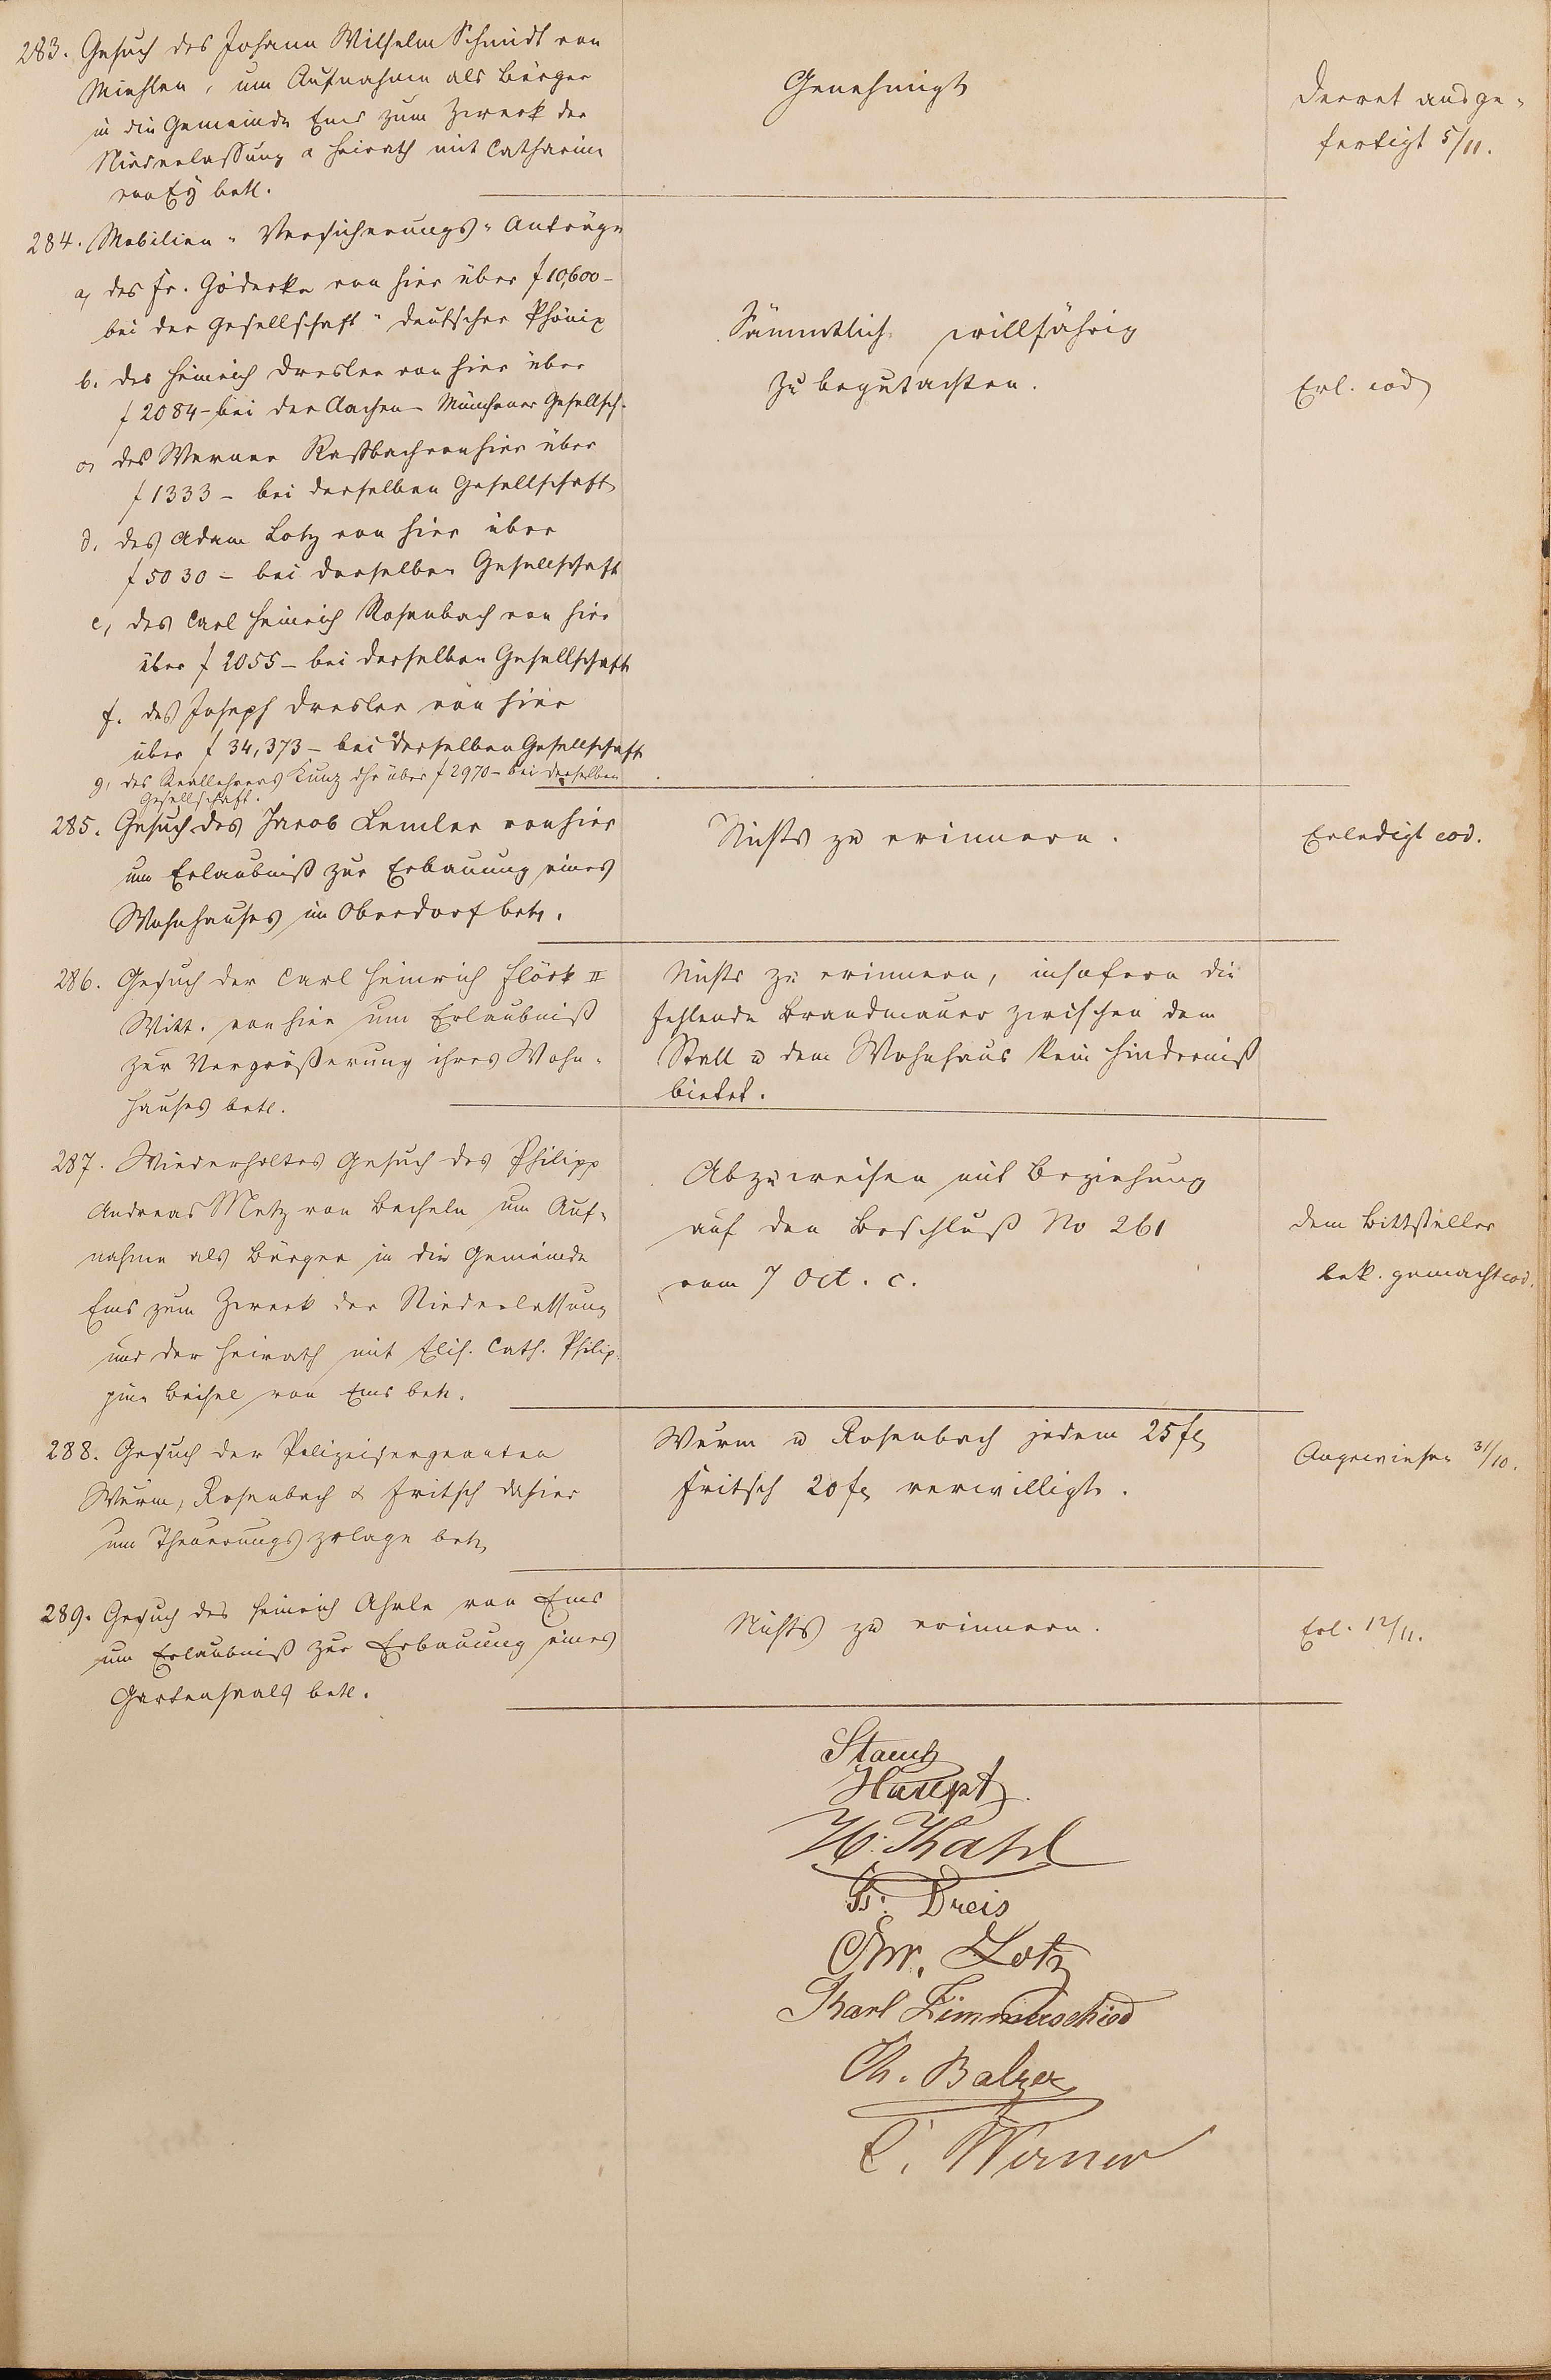 283. Gesuch des Johann Wilhelm Schmidt von
Miehlen, um Aufnahme als Bürger
in die Gemeinde Ems zum Zweck der
Niederlassung & Heirath mit Catharine
von Ey betr.
Genehmigt
Decret ausge-
fertigt 5/11.
284. Mobilien-Versicherungs-Anträge
a, des Fr. Gödecke von hier über f 10,600 –
bei der Gesellschaft "deutscher Phönix
b. des Heinrich Dresler von hier über
f 2084 – bei der Aachen-Münchener Gesellsch.
c, des Werner Raßbach von hier über
f 1333 – bei derselben Gesellschaft
d, des Adam Lotz von hier über
f 5030 – bei derselben Gesellschaft
e, des Carl Heinrich Rosenbach von hier
über f 2055 – bei derselben Gesellschaft
f. des Joseph Dresler von hier
über f 34,373 – bei derselben Gesellschaft
g, des Reallehrers Kunz dhr über f 2970 – bei derselben
Gesellschaft.
Sämmtlich willfährig
zu begutachten.
Erl. eod
285. Gesuch des Jacob Lemler von hier
um Erlaubniß zur Erbauung eines
Wohnhauses im Oberdorf betr.
Nichts zu erinnern.
Erledigt eod.
286. Gesuch der Carl Heinrich Flöck II
Witt. von hier um Erlaubniß
zur Vergrößerung ihres Wohn-
hauses betr.
Nichts zu erinnern, insofern die
fehlende Brandmauer zwischen dem
Stall u dem Wohnhaus kein Hinderniß
bietet.
287. Wiederholtes Gesuch des Philipp
Andreas Metz von Becheln um Auf-
nahme als Bürger in die Gemeinde
Ems zum Zweck der Niederlassung
und der Heirath mit Elis. Cath. Philip-
pine Beisel von Ems betr.
Abzuweisen mit Beziehung
auf den Beschluß No 261
vom 7 Oct. c.
dem Bittsteller
bek. gemacht eod.
288. Gesuch der Polizeisergeanten
Wurm, Rosenbach & Fritsch dahier
um Theuerungszulage betr.
Wurm u Rosenbach jedem 25 fl
Fritsch 20 fl verwilligt.
Angewiesen 31/10.
289. Gesuch des Heinrich Ahrle von Ems
um Erlaubniß zur Erbauung eines
Gartensaals betr.
Nichts zu erinnern.
Erl. 12/11.
Haupt
Dreis
Chr. Lotz
Karl Zimmerschied
Ch. Balzer
C. Werner